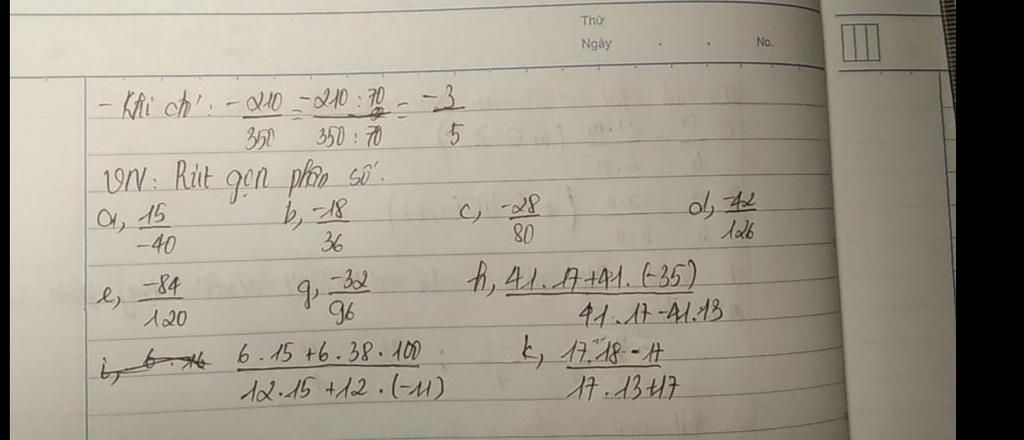 Thứ
Ngày . . No.
- Khi đó: -210/350 = -210:70/350:70 = -3/5
VN: Rút gọn phân số.
a, 15/-40 b, -18/36 c, -28/80 d, -42/126
e, -84/120 g, -32/96 h, 41.17+41.(-35)/41.17-41.13
i, 6.16 6.15+6.38.100/12.15+12.(-11) k, 17.18-17/17.13+17